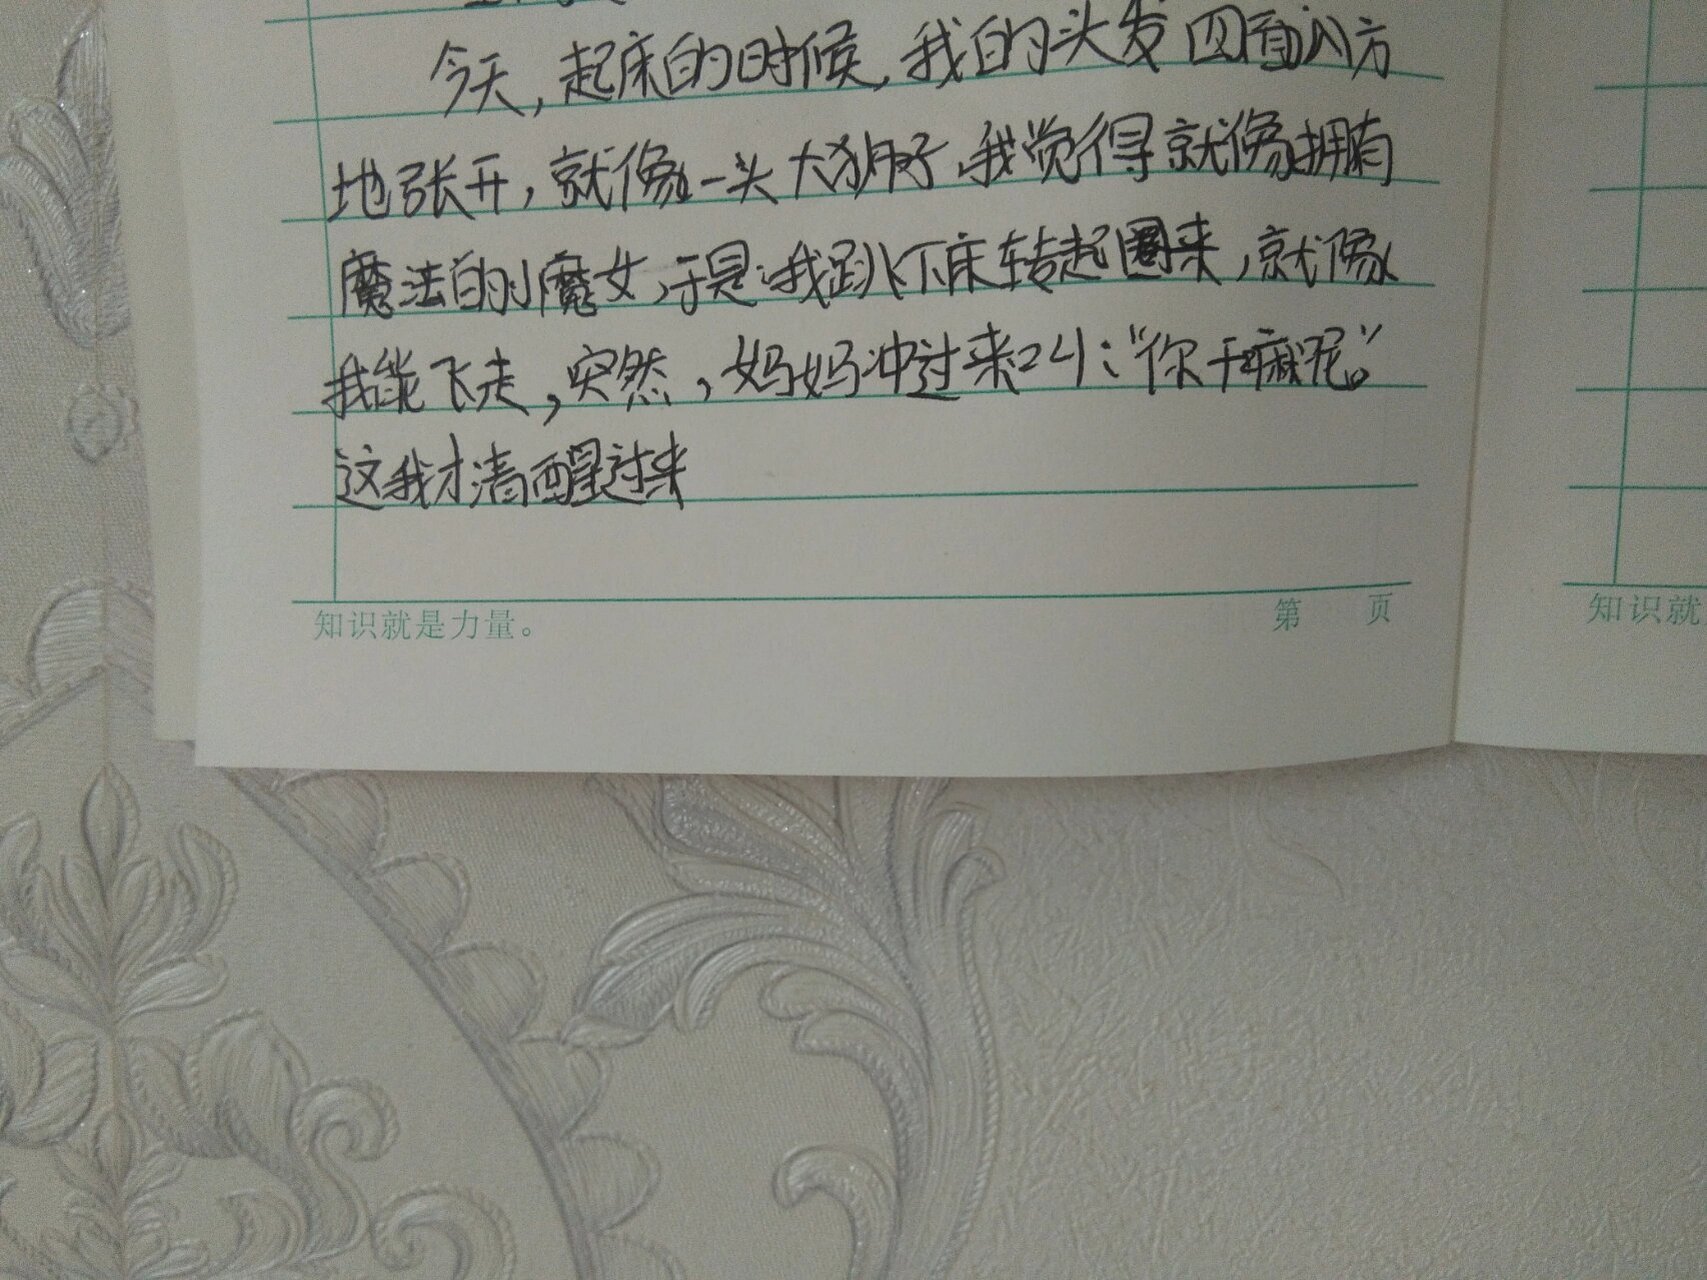 今天,起床的时候,我的头发四面八方
地张开,就像一头大狮子,我觉得就像拥有
魔法的小魔女,于是,我跳下床转起圈来,就像
我能飞走,突然,妈妈冲过来叫:“你干嘛呢。”
这我才清醒过来
知识就是力量。
第 页
知识就